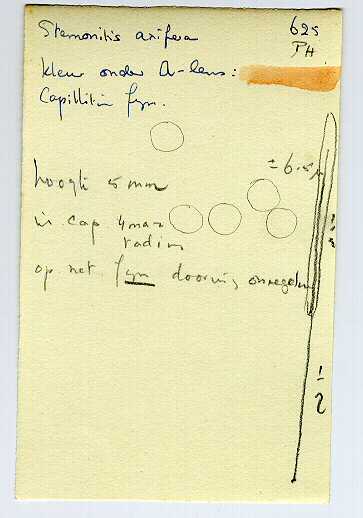 Stemonitis axifera
625
PH
kleur onder A-lens:
Capillitium fyn.
± 6.5 µ
hoogte 5 mm
in cap 4 max
radiur
op net fyn doornig onregelm
1/2